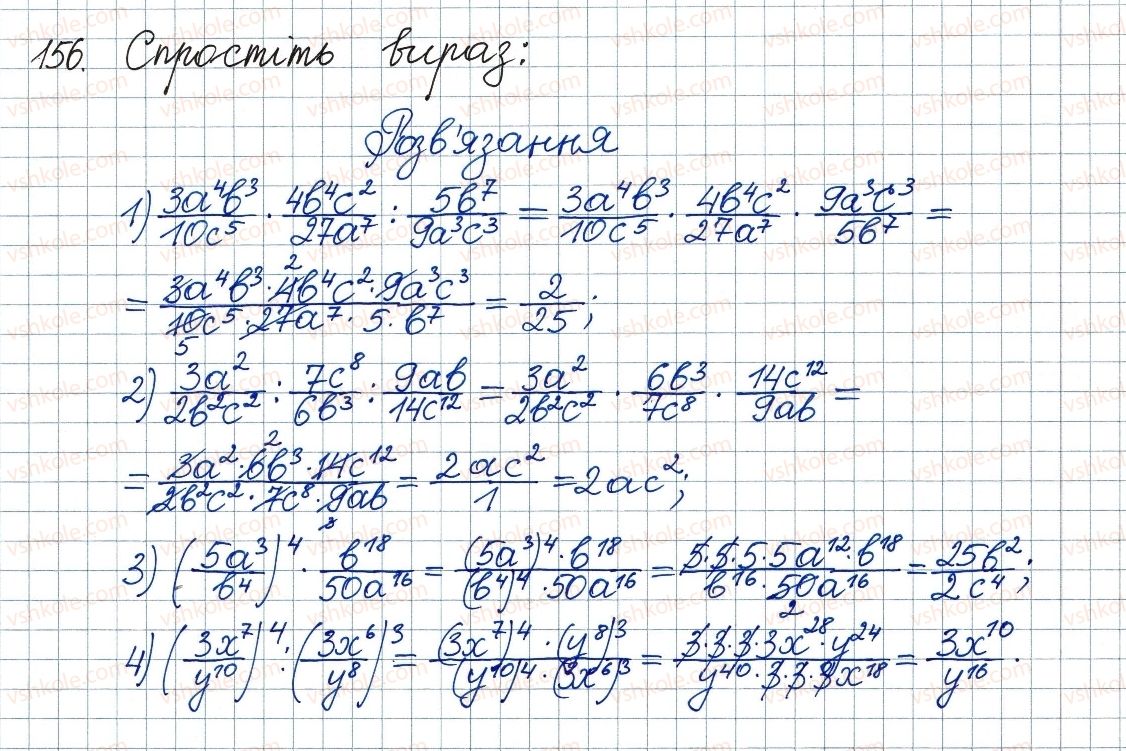 156. Спростіть вираз:
Розв'язання
1) 3a⁴b³/10c⁵ · 4b⁴c²/27a⁷ : 5b⁷/9a³c³ = 3a⁴b³/10c⁵ · 4b⁴c²/27a⁷ · 9a³c³/5b⁷ =
= 3a⁴b³ · 4b⁴c² · 9a³c³ / 10c⁵ · 27a⁷ · 5 · b⁷ = 2/25;
2) 3a²/2b²c² : 7c⁸/6b³ : 9ab/14c¹² = 3a²/2b²c² · 6b³/7c⁸ · 14c¹²/9ab =
= 3a² · 6b³ · 14c¹² / 2b²c² · 7c⁸ · 9ab = 2ac²/1 = 2ac²;
3) (5a³/b⁴)⁴ · b¹⁸/50a¹⁶ = (5a³)⁴ · b¹⁸ / (b⁴)⁴ · 50a¹⁶ = 5·5·5·5a¹² · b¹⁸ / b¹⁶ · 50a¹⁶ = 25b²/2c⁴;
4) (3x⁷/y¹⁰)⁴ : (3x⁶/y⁸)³ = (3x⁷)⁴ · (y⁸)³ / (y¹⁰)⁴ · (3x⁶)³ = 3·3·3·3x²⁸ · y²⁴ / y⁴⁰ · 3·3·3x¹⁸ = 3x¹⁰/y¹⁶.